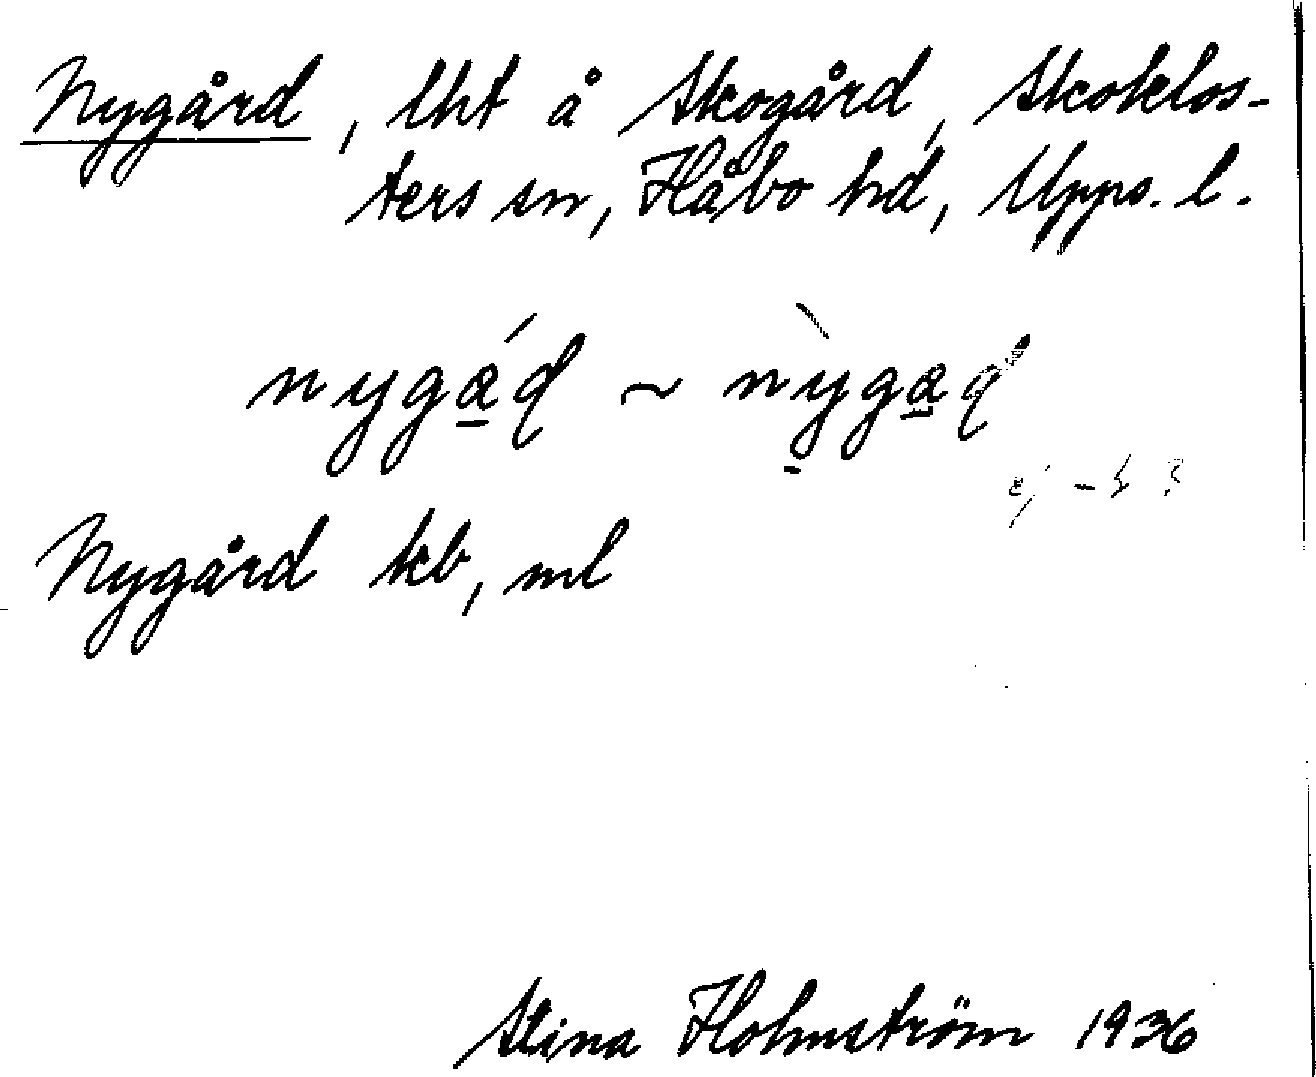 Nygård, lht å Skogård, Skoklos-
ters sn, Håbo hd, Upps. l.
nygá̲d ~ nỳga̲d
ej -
Nygård kb, ml
Stina Holmström 1936